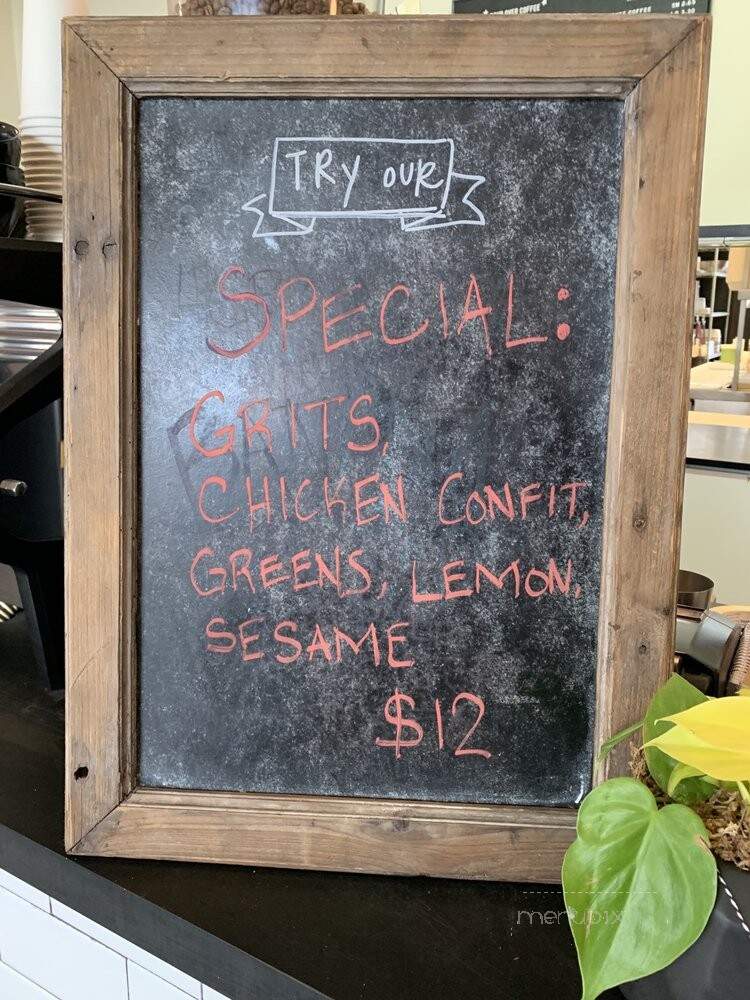 TRY OUR
SPECIAL:
GRITS,
CHICKEN CONFIT,
GREENS, LEMON,
SESAME
$12
menupix